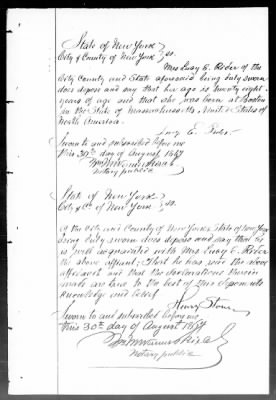 State of New York
City & County of New York } ss.
Mrs Lucy E. Rider of the
City County and State aforesaid being duly sworn
does depose and say that her age is twenty eight
years of age and that she was born at Boston
in the State of Massachusetts, United States of
North America.
Lucy E. Rider
Sworn to and subscribed before me
this 30th day of August 1867
Notary public
State of New York
City & Co of New York } ss.
Of the City and County of New York & State of New York
being duly sworn does depose and say that he
is well acquainted with Mrs Lucy E. Rider
the above affiant; that he has seen the above
affidavit and that the declarations therein
made are true to the best of this deponents
knowledge and belief
Henry Stone
Sworn to and subscribed before me
this 30th day of August 1867
Notary public